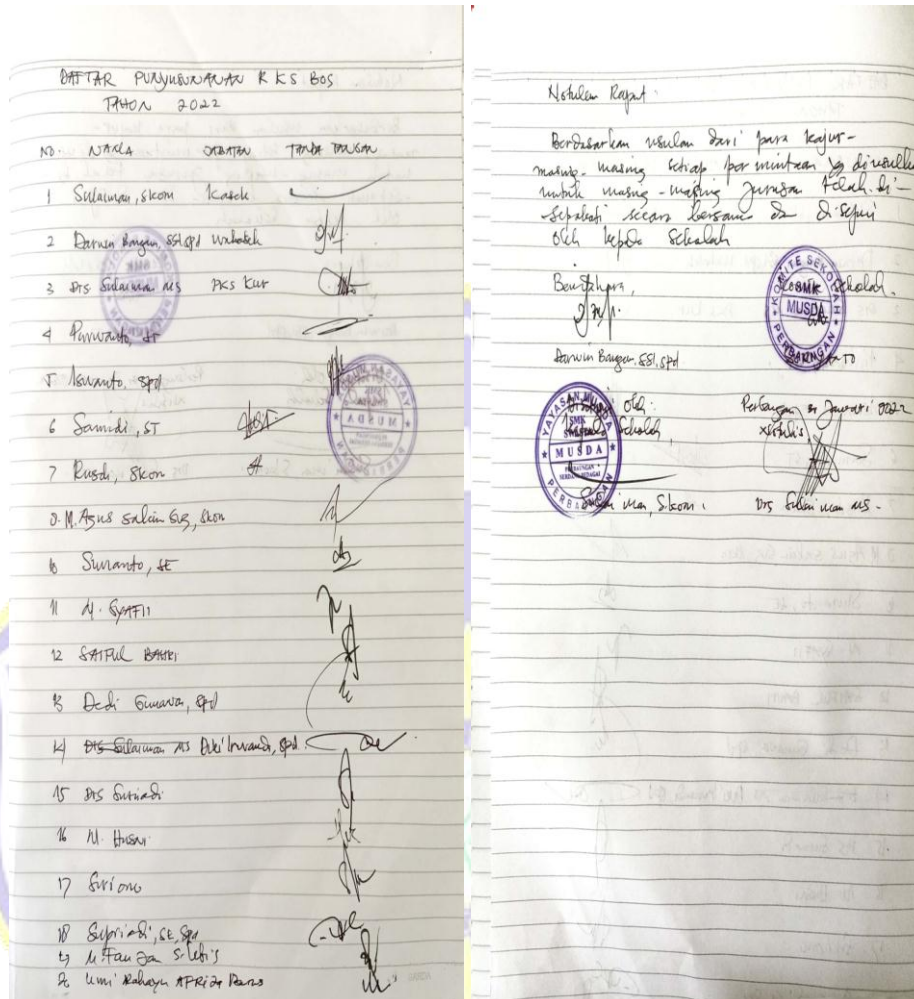 DAFTAR PUNYUSUNANAN RKS BOS
TAHUN 2022
NO. NAMA JABATAN TANDA TANGAN
1 Sulaiman, Skom Kasek
2 Darwin Bangun, SSi, Spd wakasek
3 Drs Sulaiman MS PKS Kur
4 Purwanto, ST
5 Iswanto, Spd
6 Samidi, ST
7 Rusdi, Skom
M. Agus Salim Skom
Suwanto, SE
11 M. SYAFII
12 SAIFUL BAHRI
Dedi Gunawan, Spd
14 Drs Sulaiman MS Spd
15 Drs Suriadi
16 M. Husni
17 Suriono
18 Supriadi, SE, Spd
Umi Rahayu
Notulen Rapat.
Berdasarkan usulan dari para kajur-
masing-masing setiap permintaan yg diusulkan
untuk masing-masing Jurusan telah di-
sepakati secara bersama dan di setujui
oleh kepala Sekolah
Bendahara,
Komite Sekolah.
KOMITE SEKOLAH
SMK
MUSDA
PERBAUNGAN
Darwin Bangun, SSi, Spd
oleh:
Sekolah,
YAYASAN MUSDA
SMK
MUSDA
PERBAUNGAN
Sulaiman, Skom.
Januari 2022
Notulis,
Drs Sulaiman MS.